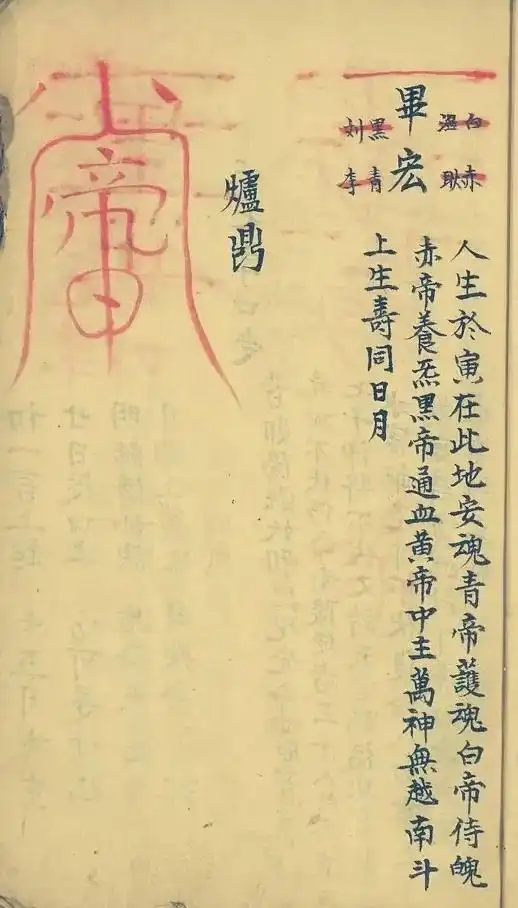 白 赤
温 耿
畢宏
黑 青
刘 李
人生於寅在此地安魂青帝護魂白帝侍魄
赤帝養炁黑帝通血黄帝中主萬神無越南斗
上生壽同日月
爐鼎
帝